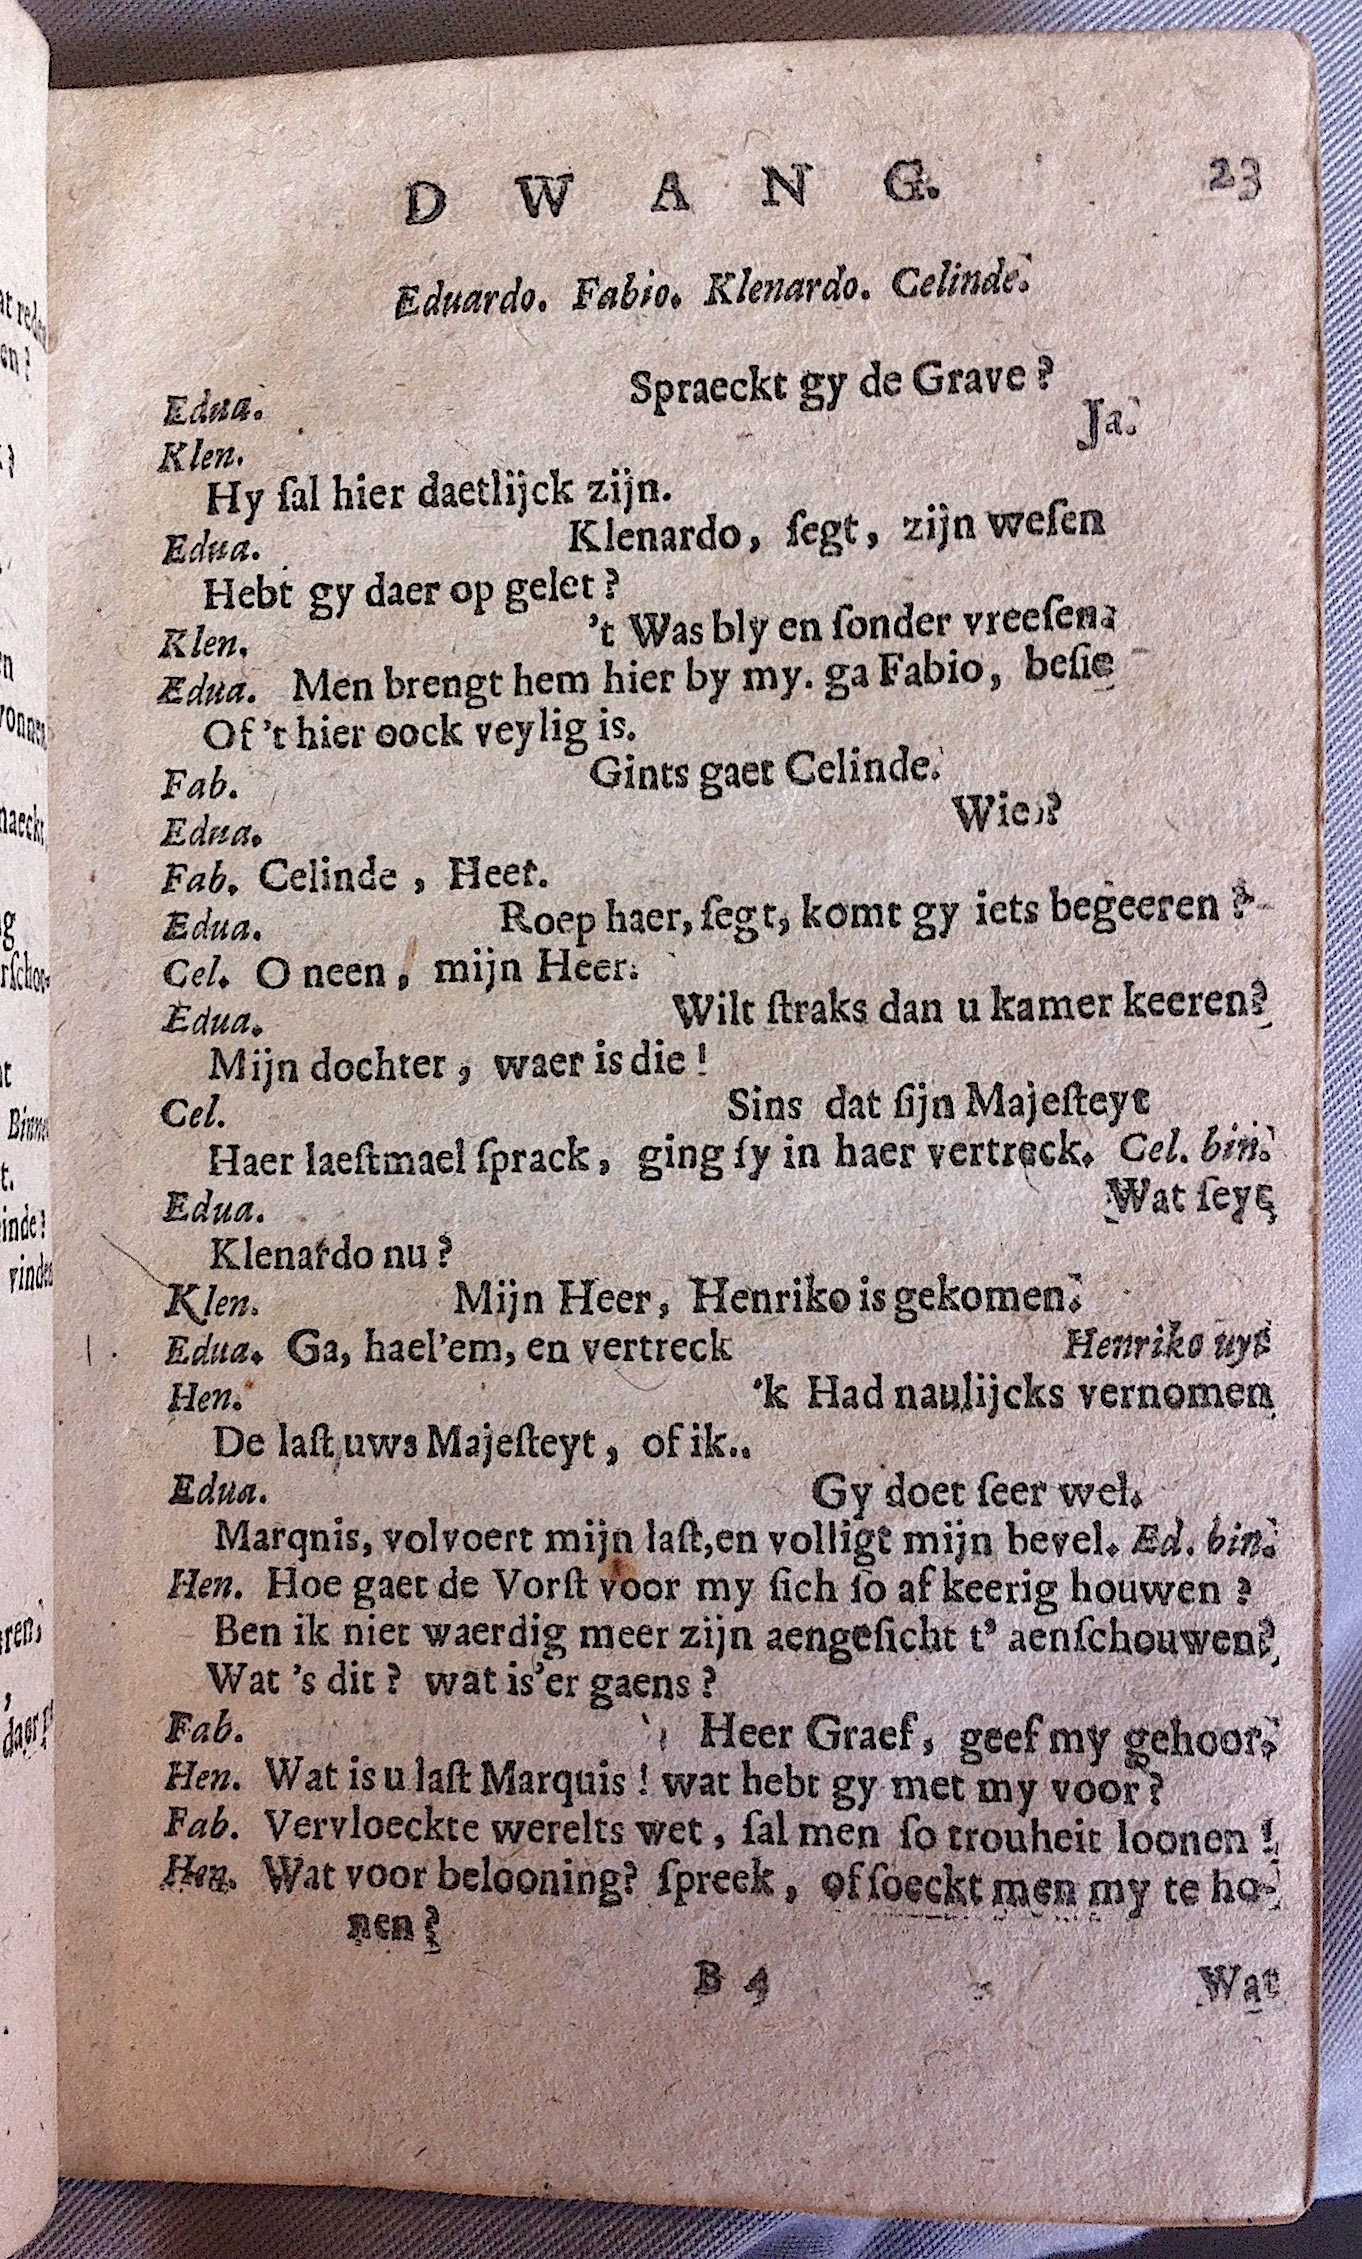 D W A N G. 23
Eduardo. Fabio. Klenardo. Celinde.
Edua. Spraeckt gy de Grave?
Klen. Ja.
Hy ſal hier daetlijck zijn.
Edua. Klenardo, ſegt, zijn weſen
Hebt gy daer op gelet?
Klen. 't Was bly en ſonder vreeſen.
Edua. Men brengt hem hier by my. ga Fabio, beſie
Of 't hier oock veylig is.
Fab. Gints gaet Celinde.
Edua. Wie?
Fab. Celinde, Heer.
Edua. Roep haer, ſegt, komt gy iets begeeren?
Cel. O neen, mijn Heer.
Edua. Wilt ſtraks dan u kamer keeren?
Mijn dochter, waer is die!
Cel. Sins dat ſijn Majeſteyt
Haer laeſtmael ſprack, ging ſy in haer vertreck. Cel. bin.
Edua. Wat ſeyt
Klenardo nu?
Klen. Mijn Heer, Henriko is gekomen.
Edua. Ga, hael'em, en vertreck Henriko uyt
Hen. 'k Had naulijcks vernomen
De laſt uws Majeſteyt, of ik..
Edua. Gy doet ſeer wel.
Marqnis, volvoert mijn laſt, en volligt mijn bevel. Ed. bin.
Hen. Hoe gaet de Vorſt voor my ſich ſo af keerig houwen?
Ben ik niet waerdig meer zijn aengeſicht t' aenſchouwen?
Wat 's dit? wat is'er gaens?
Fab. Heer Graef, geef my gehoor.
Hen. Wat is u laſt Marquis! wat hebt gy met my voor?
Fab. Vervloeckte werelts wet, ſal men ſo trouheit loonen!
Hen. Wat voor belooning? ſpreek, of ſoeckt men my te ho-
nen?
B 4 Wat